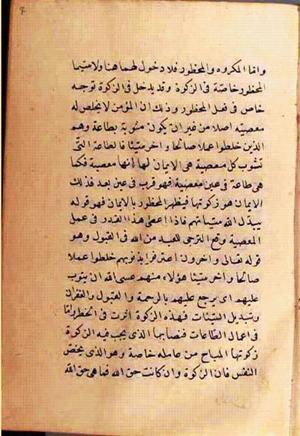 واما المكروه والمحظور فلا دخول لهما هنا ولا سيما
المحظور خاصة في الزكوة وقد يدخل في الزكوة توجه
خاص في فعل المحظور وذلك ان المؤمن لا تخلص له
معصية اصلا من غير ان يكون مشوبة بطاعة وهم
الذين خلطوا عملا صالحا واخر سيئا فالطاعة التي
تشوب كل معصية هي الايمان لها انها معصية فكما
هي طاعة في عين معصية فهو قرب في عين بعد فذلك
الايمان هو زكوتها فيطهر المحظور بالايمان فهو قوله
يبدل الله سيئاتهم فاذا اعطى هذا القدر في عمل
المعصية وقع الترجي للعبد من الله في القبول وهو
قوله تعالى واخرون اعترفوا بذنوبهم خلطوا عملا
صالحا واخر سيئا هؤلاء منهم عسى الله ان يتوب
عليهم اى يرجع عليهم بالرحمة والقبول والغفران
وتبديل السيئات فهذه الزكوة اثرت في الحظر واما
في اعمال الطاعات فنصابها الذى يجب فيه الزكوة
زكوتها المباح من عامله خاصة وهو الذى يخص
النفس فان الزكوة وان كانت حق الله فما هى حق الله